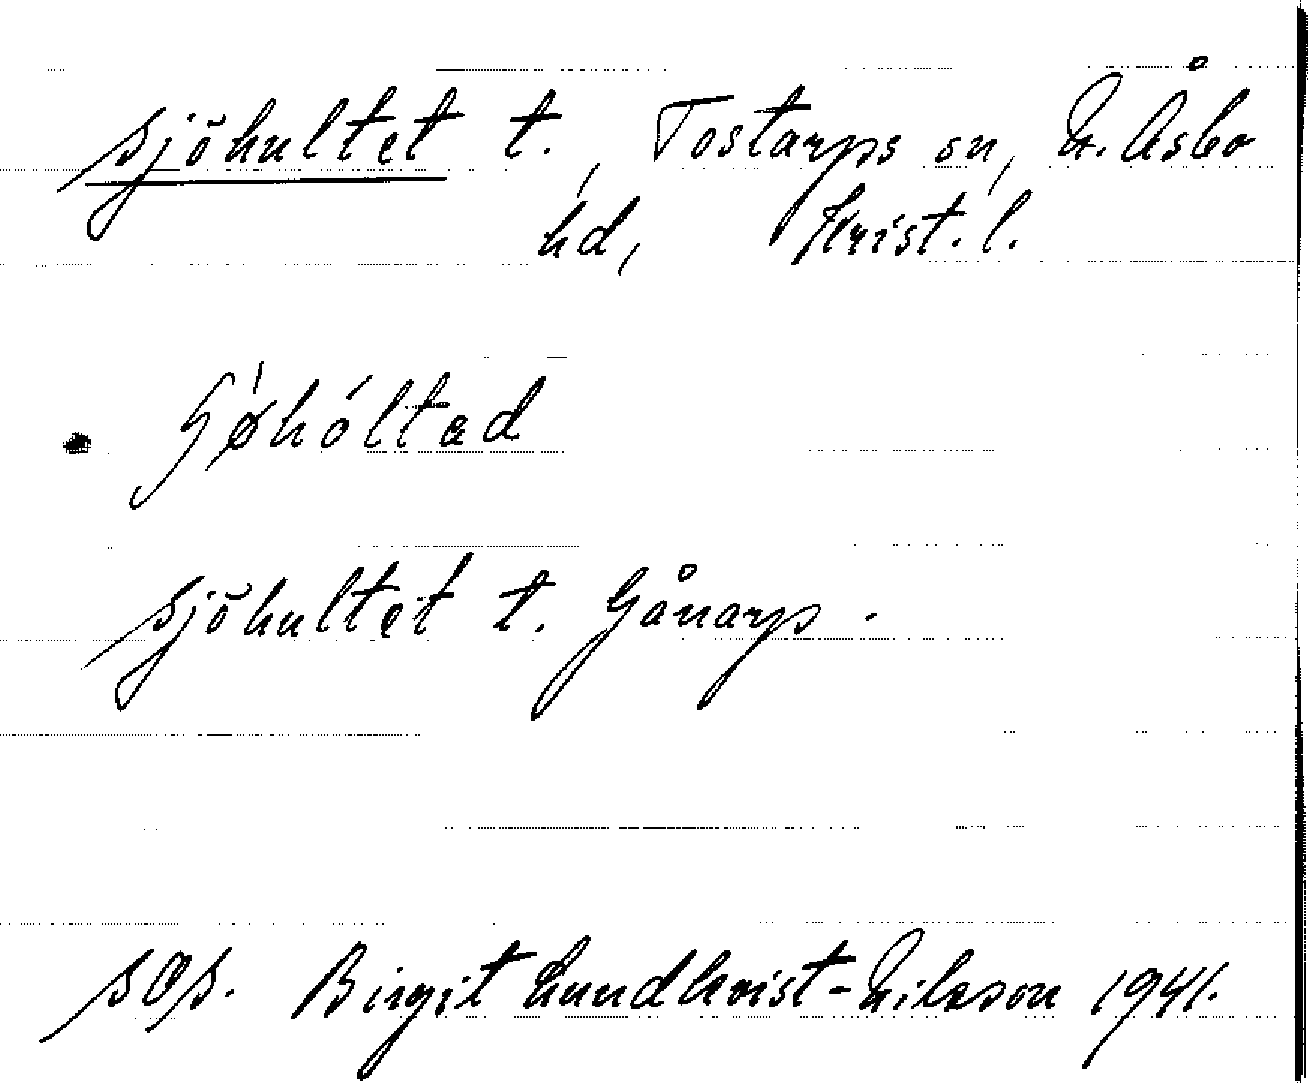 Sjöhultet t., Tostarps sn, N. Åsbo
hd, Krist. l.
Sjöhultet t. Gånarp.
SOS. Birgit Lundkvist-Nilsson 1941.